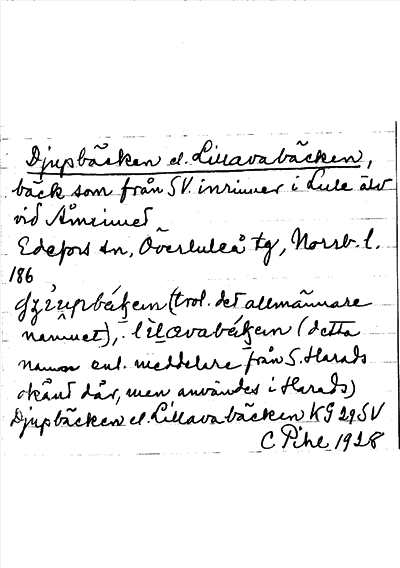 Djupbäcken el. Lillavabäcken,
bäck som från SV. inrinner i Lule älv
vid Åmrinnet
Edefors sn, Överluleå tg, Norrb. l.
186
(trol. det allmännare
namnet), (detta
namn enl. meddelare från S. Harads
okänd där, men användes i Harads)
Djupbäcken el. Lillavabäcken KG 29 SV
C Pihl 1928